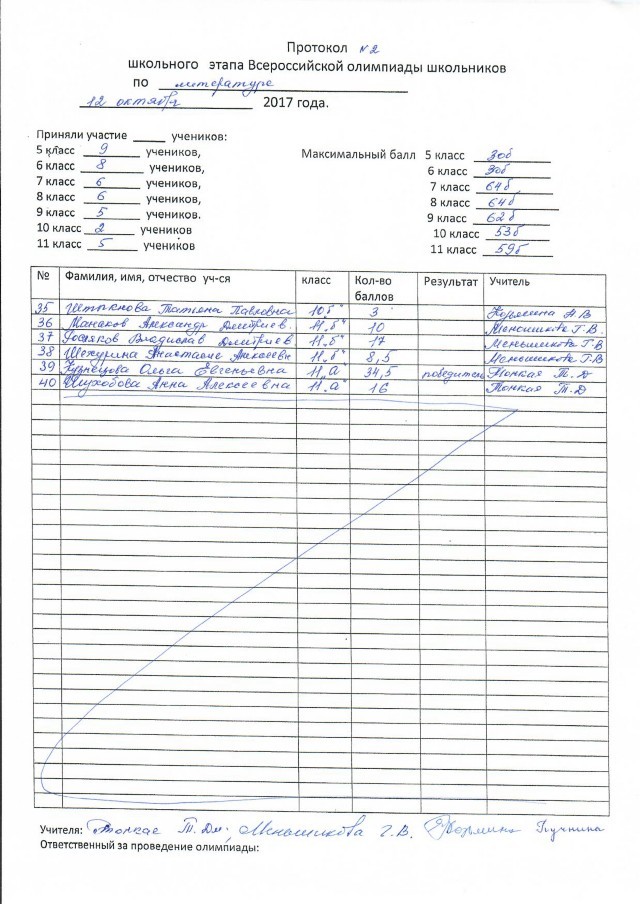 Протокол №2
школьного этапа Всероссийской олимпиады школьников
по литературе
12 октября 2017 года.
Приняли участие _____ учеников:
5 класс 9 учеников,
6 класс 8 учеников,
7 класс 6 учеников,
8 класс 6 учеников,
9 класс 5 учеников.
10 класс 2 учеников
11 класс 5 учеников
Максимальный балл 5 класс 30б
6 класс 30б
7 класс 64б
8 класс 64б
9 класс 62б
10 класс 53б
11 класс 59б
№ Фамилия, имя, отчество уч-ся класс Кол-во баллов Результат Учитель
35 Татьяна Павловна 10„б" 3 А В
36 Манаков Александр Дмитриев. 11„б" 10 Меньшикова Г.В.
37 Владислав Дмитриев 11„б" 17 Меньшикова Г.В
38 Шекурина Анастасия Алексеевн 11„б" 8,5 Меньшикова Г.В
39 Кузнецова Ольга Евгеньевна 11„а 34,5 победитель Тонкая Т. Д
40 Анна Алексеевна 11„а" 16 Тонкая Т. Д
Учителя: Тонкая Т. Дм. Меньшикова Г. В.
Ответственный за проведение олимпиады: